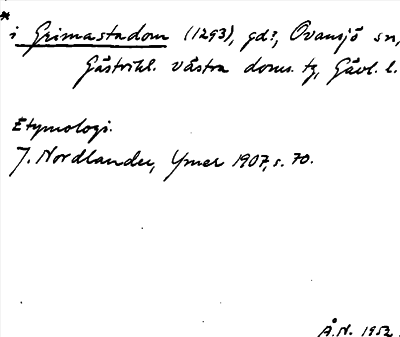 *
i Grimastadom (1293), gd?, Ovansjö sn,
Gästrikl. västra doms. tg, Gävl. l.
Etymologi.
J. Nordlander, Ymer 1907, s. 70.
Å.N. 1952.